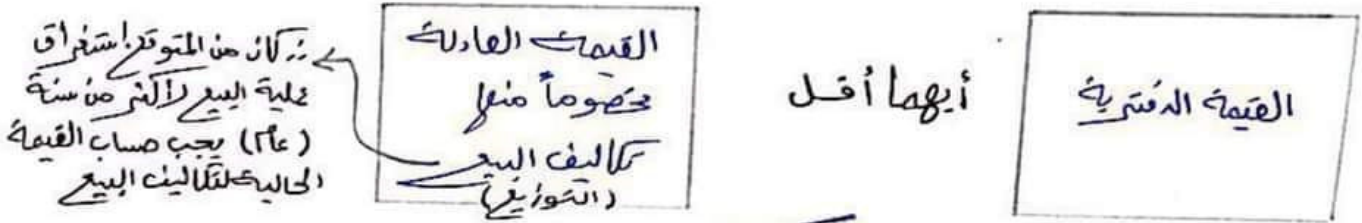 القيمة الدفترية
أيهما أقل
القيمة العادلة
مخصوماً منها
تكاليف البيع
(التوزيع)
إذا كان من المتوقع استغراق
عملية البيع لأكثر من سنة
(عام) يجب حساب القيمة
الحالية لتكاليف البيع